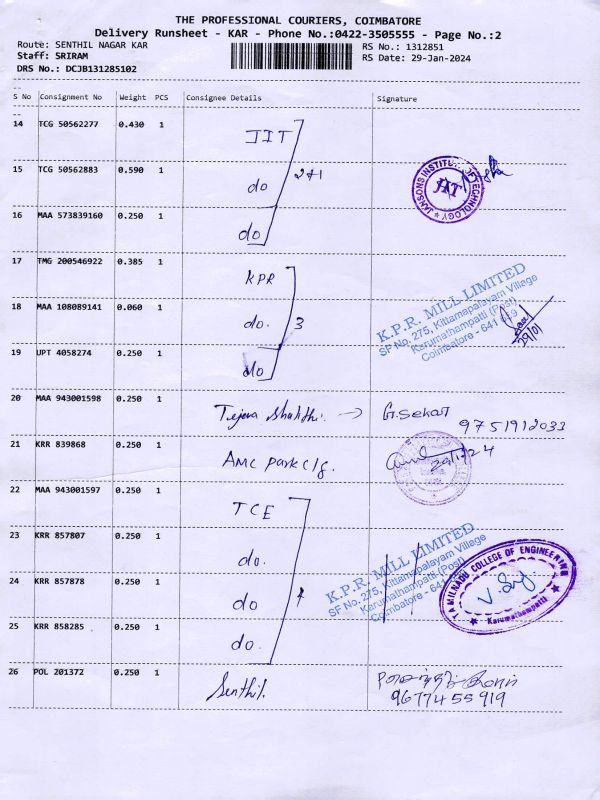 THE PROFESSIONAL COURIERS, COIMBATORE
Delivery Runsheet - KAR - Phone No.:0422-3505555 - Page No.:2
Route: SENTHIL NAGAR KAR
RS No.: 1312851
Staff: SRIRAM
RS Date: 29-Jan-2024
DRS No.: DCJB131285102
S No Consignment No Weight PCS Consignee Details Signature
14 TCG 50562277 0.430 1 JIT
15 TCG 50562883 0.590 1 do 2+1
JANSONS INSTITUTE OF TECHNOLOGY
JIT
16 MAA 573839160 0.250 1 do
17 TMG 200546922 0.385 1 KPR
18 MAA 108089141 0.060 1 do. 3
K.P.R. MILL LIMITED
SF No. 275, Kittampalayam Village
Karumathampatti (Post)
Coimbatore - 641
29/01
19 UPT 4058274 0.250 1 do
20 MAA 943001598 0.250 1 Tejova → G.Sekar
9751912033
21 KRR 839868 0.250 1 AMC Park
22 MAA 943001597 0.250 1 TCE
23 KRR 857807 0.250 1 do.
24 KRR 857878 0.250 1 do
K.P.R. MILL LIMITED
SF No. 275, Kittampalayam Village
Karumathampatti (Post)
Coimbatore - 641
TAMILNADU COLLEGE OF ENGINEERING
Karumathampatti
25 KRR 858285 0.250 1 do.
26 POL 201372 0.250 1 Senthil.
9677455919